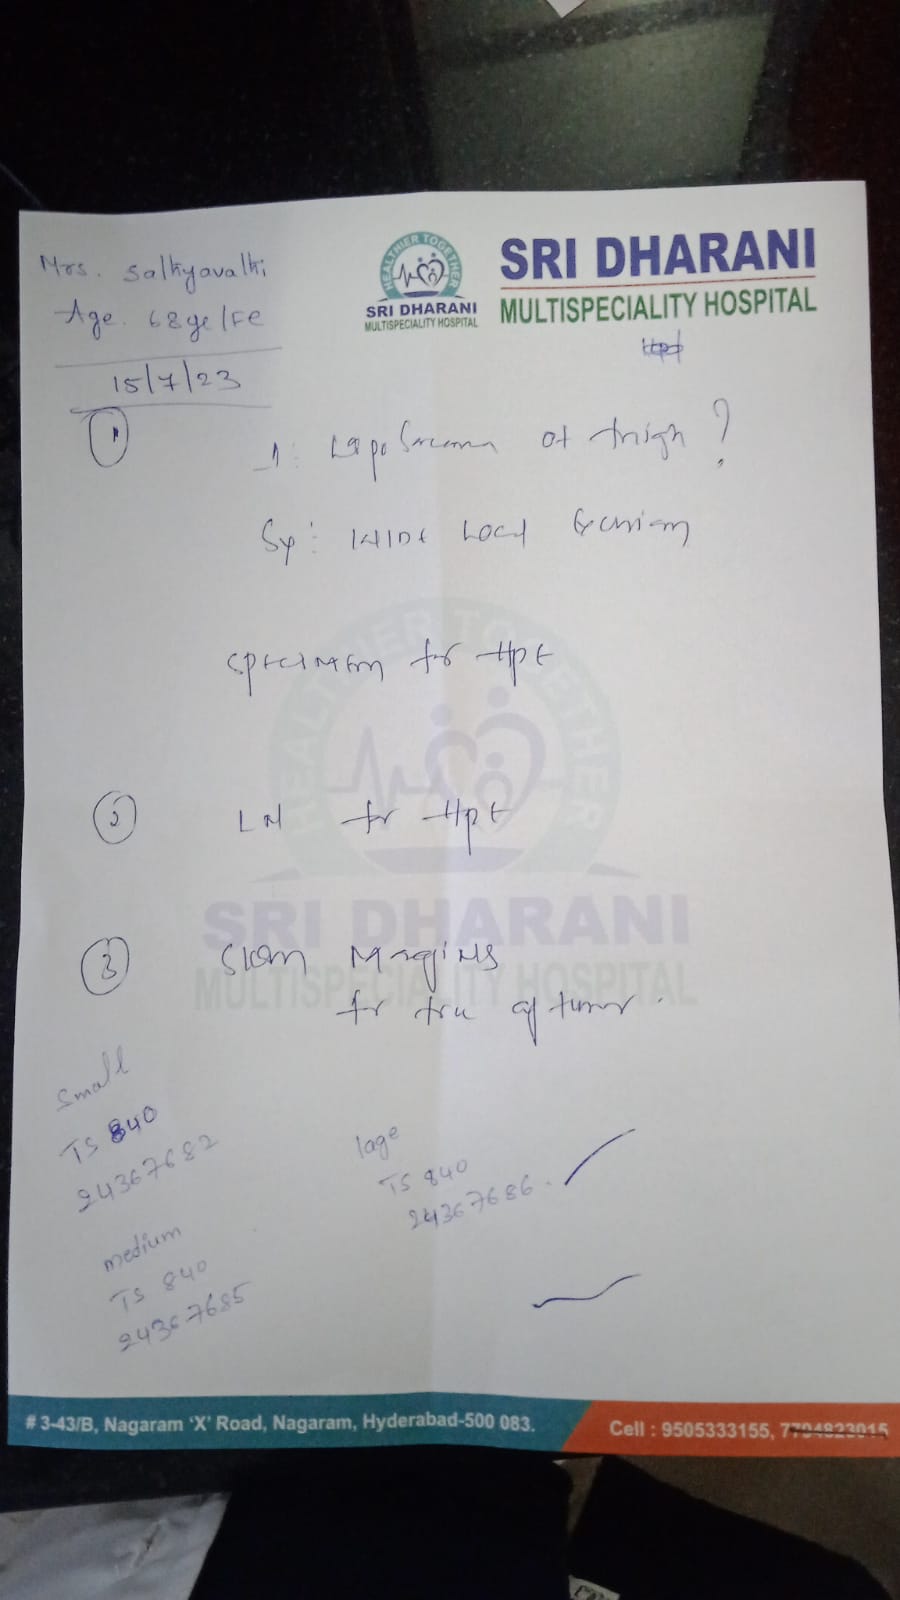 Mrs. Sathyavathi
Age. 68ye/Fe
15/7/23
HEALTHIER TOGETHER
SRI DHARANI
MULTISPECIALITY HOSPITAL
SRI DHARANI
MULTISPECIALITY HOSPITAL
1
Liposarcoma of thigh ?
Sx: WIDE Local Excision
SPECIMEN for HPE
2 LN for HPE
3 Skin Margins
for free of tumor.
small
TS 840
24367682
lage
TS 840
24367686.
medium
TS 840
24367685
HEALTHIER TOGETHER
SRI DHARANI
MULTISPECIALITY HOSPITAL
# 3-43/B, Nagaram 'X' Road, Nagaram, Hyderabad-500 083.
Cell : 9505333155, 7794823015